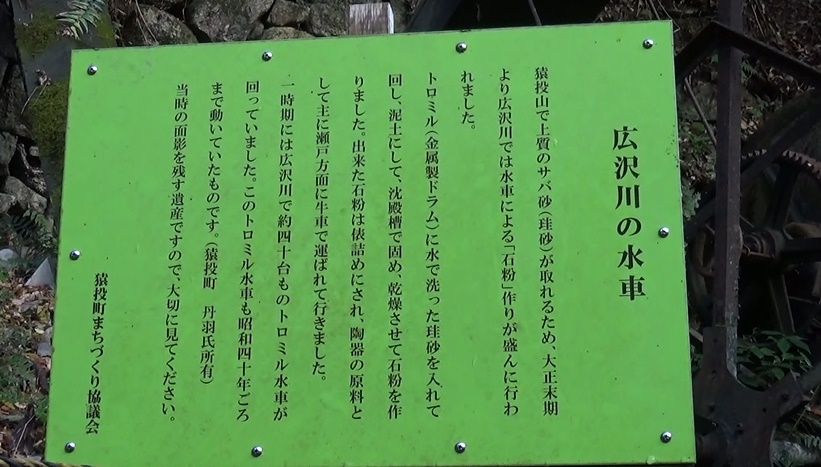 広沢川の水車
猿投山で上質のサバ砂(珪砂)が取れるため、大正末期
より広沢川では水車による「石粉」作りが盛んに行わ
れました。
トロミル(金属製ドラム)に水で洗った珪砂を入れて
回し、泥土にして、沈殿槽で固め、乾燥させて石粉を作
りました。出来た石粉は俵詰めにされ、陶器の原料と
して主に瀬戸方面に牛車で運ばれて行きました。
一時期には広沢川で約四十台ものトロミル水車が
回っていました。このトロミル水車も昭和四十年ごろ
まで動いていたものです。(猿投町 丹羽氏所有)
当時の面影を残す遺産ですので、大切に見てください。
猿投町まちづくり協議会